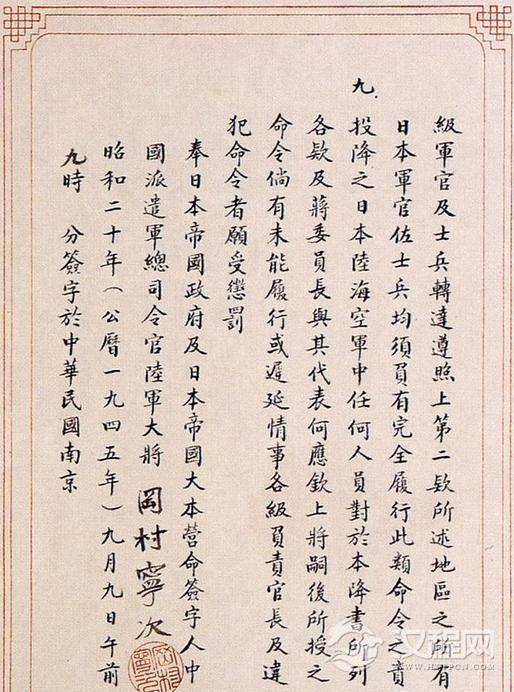 級軍官及士兵轉達遵照上第二款所述地區之所有
日本軍官佐士兵均須負有完全履行此類命令之責
九.
投降之日本陸海空軍中任何人員對於本降書所列
各款及蔣委員長與其代表何應欽上將嗣後所授之
命令倘有未能履行或遲延情事各級負責官長及違
犯命令者願受懲罰
奉日本帝國政府及日本帝國大本營命簽字人中
國派遣軍總司令官陸軍大將 岡村寧次
昭和二十年(公曆一九四五年)九月九日午前
九時 分簽字於中華民國南京
汉程网
HTTPCN.COM